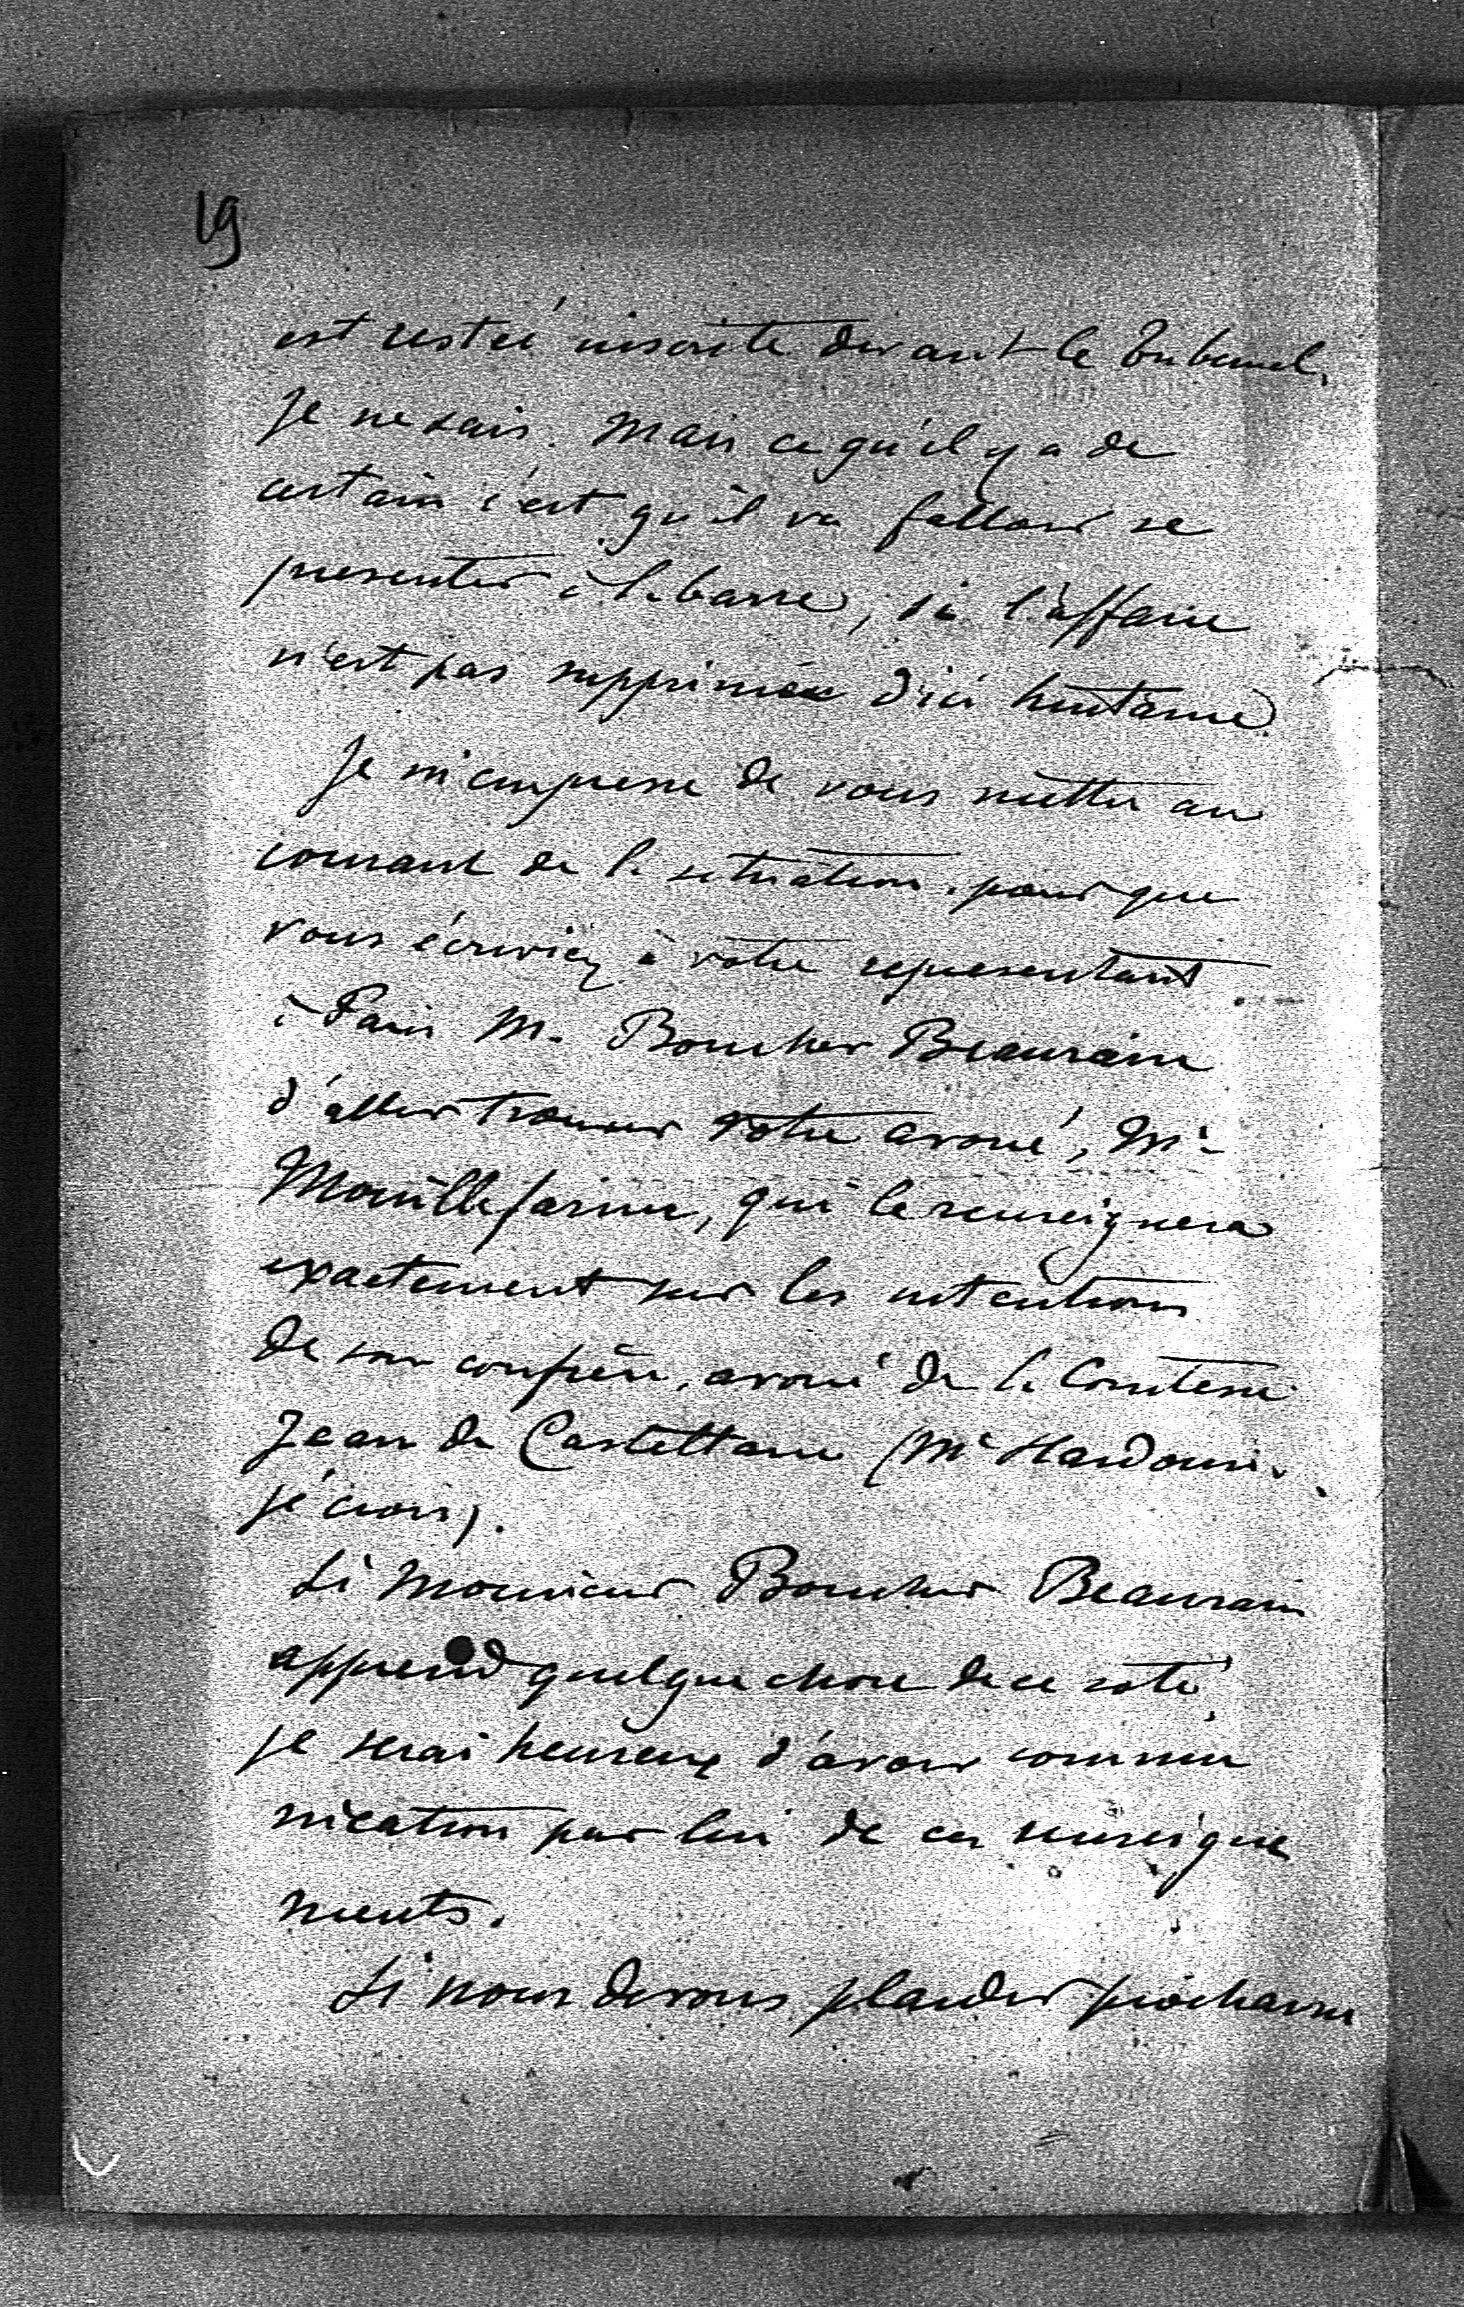 19
est restée inscrite devant le Tribunal,
je ne sais. Mais ce qu'il y a de
certain c'est qu'il va falloir se
presenter à la barre, si l'affaire
n'est pas supprimée d'ici huitaine.
Je m'empresse de vous mettre au
courant de la situation, pour que
vous écriviez à votre representant
à Paris M. Boucher Beaurain
d'aller trouver votre avoué, Me
Mouillefarine, qui le renseignera
exactement sur les intentions
de son confrère, avoué de la Comtesse
Jean de Castellane (Me Hardouin,
je crois).
Si Monsieur Boucher Beaurain
apprend quelque chose de ce coté
je serai heureux d'avoir commu
nication par lui de ces renseigne
ments.
Si nous devons plaider prochaine